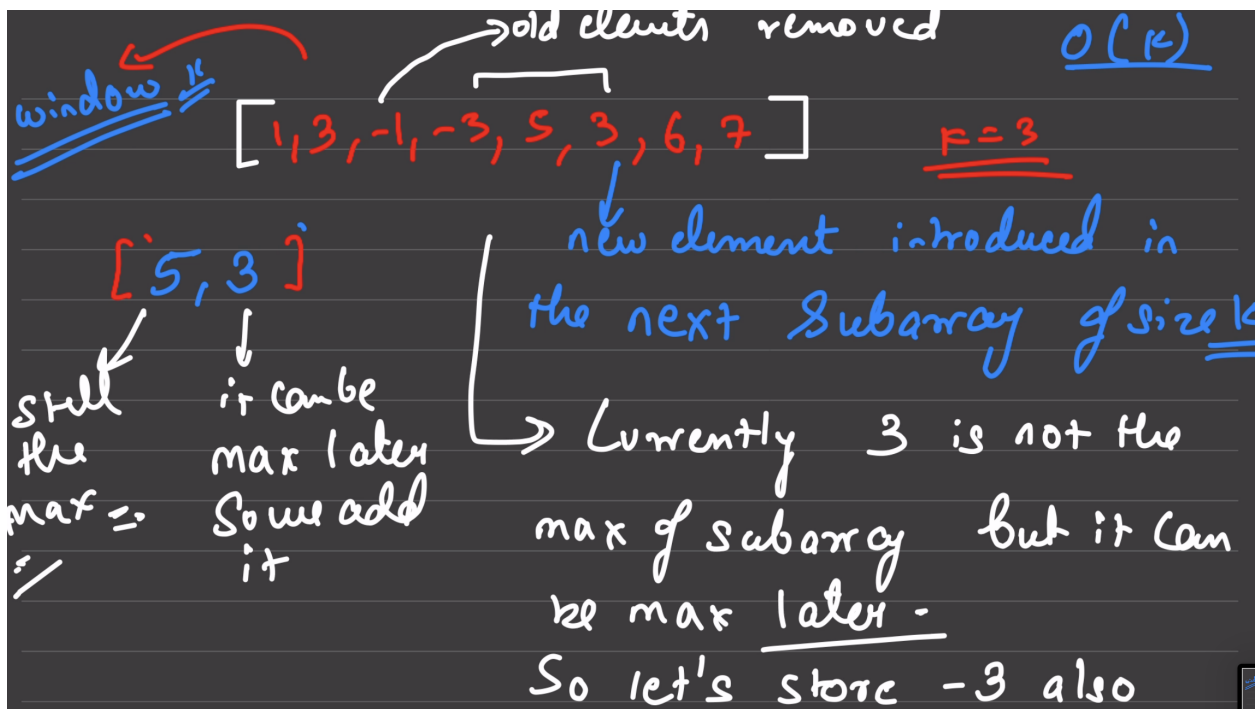 old elemts removed
O(K)
window K
[1, 3, -1, -3, 5, 3, 6, 7]
K = 3
new element introduced in
the next Subarray of size K
[5, 3]
still
the
max
it can be
max later
So we add
it
Currently 3 is not the
max of subarray but it can
be max later -
So let's store -3 also